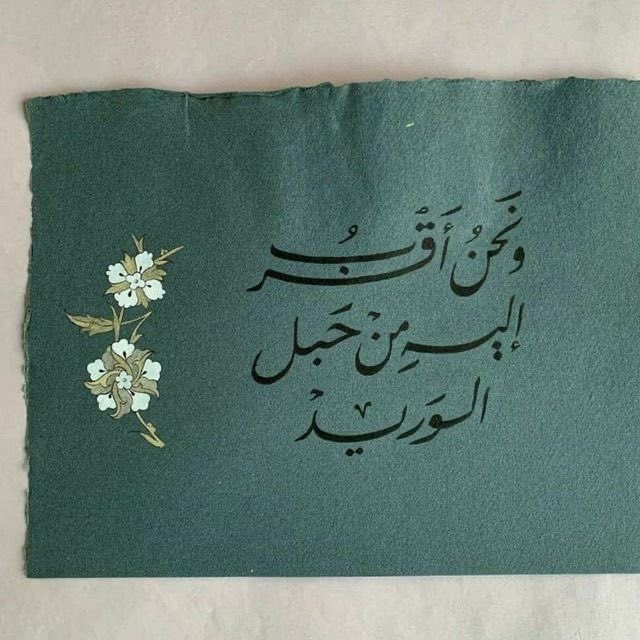 وَنَحنُ أَقْرَبُ
إليهِ مِنْ حَبلِ
الوَريدْ